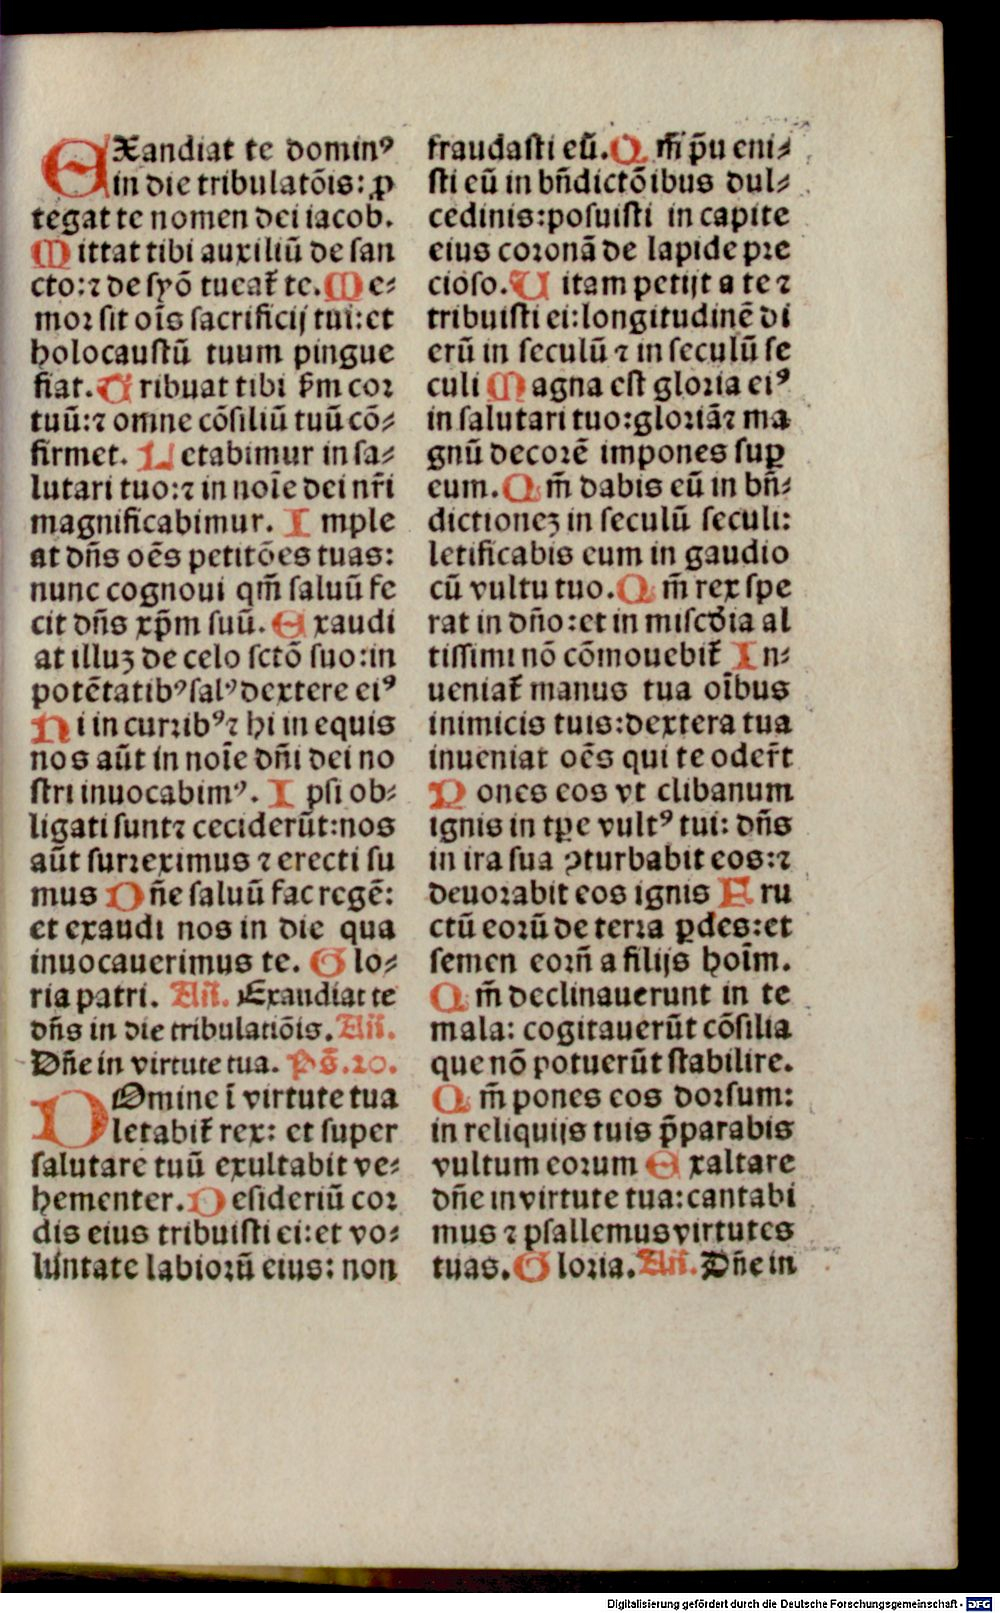 EXandiat te dominꝰ
in die tribulatōis: ꝓ
tegat te nomen dei iacob.
Mittat tibi auxiliū de san
cto: ⁊ de syō tueat᷑ te. Me⸗
mor sit oīs sacrificij tui: et
holocaustū tuum pingue
fiat. Tribuat tibi ẜm cor
tuū: ⁊ omne cōsiliū tuū cō⸗
firmet. Letabimur in sa⸗
lutari tuo: ⁊ in noīe dei nr̄i
magnificabimur. Imple
at dn̄s oēs petitōes tuas:
nunc cognoui qm̄ saluū fe
cit dn̄s xp̄m suū. Exaudi
at illuꝫ de celo sctō suo: in
potētatibꝰ salꝰ dextere eiꝰ
Ni in curribꝰ ⁊ hi in equis
nos aūt in noīe dn̄i dei no
stri inuocabimꝰ. Ipsi ob⸗
ligati sunt ⁊ ceciderūt: nos
aūt surreximus ⁊ erecti su
mus Dn̄e saluū fac regē:
et exaudi nos in die qua
inuocauerimus te. Glo⸗
ria patri. An̄. Exaudiat te
dn̄s in die tribulatiōis. An̄.
Dn̄e in virtute tua. Ps̄. 20.
DOmine ī virtute tua
letabit᷑ rex: et super
salutare tuū exultabit ve⸗
hementer. Desideriū cor
dis eius tribuisti ei: et vo⸗
luntate labiorū eius: non
fraudasti eū. Qm̄ p̄u eni⸗
sti eū in bn̄dictōibus dul⸗
cedinis: posuisti in capite
eius coronā de lapide pre
cioso. Uitam petijt a te ⁊
tribuisti ei: longitudinē di
erū in seculū ⁊ in seculū se
culi Magna est gloria eiꝰ
in salutari tuo: gloriā ⁊ ma
gnū decorē impones suꝑ
eum. Qm̄ dabis eū in bn̄⸗
dictioneꝫ in seculū seculi:
letificabis eum in gaudio
cū vultu tuo. Qm̄ rex spe
rat in dn̄o: et in misc̄dia al
tissimi nō cōmouebit᷑ In⸗
ueniat᷑ manus tua oībus
inimicis tuis: dextera tua
inueniat oēs qui te oder̄t
Pones eos vt clibanum
ignis in tꝑe vultꝰ tui: dn̄s
in ira sua ꝯturbabit eos: ⁊
deuorabit eos ignis Fru
ctū eorū de terra ꝑdes: et
semen eorn̄ a filijs hoīm.
Qm̄ declinauerunt in te
mala: cogitauerūt cōsilia
que nō potuerūt stabilire.
Qm̄ pones eos dorsum:
in reliquijs tuis p̄parabis
vultum eorum Exaltare
dn̄e in virtute tua: cantabi
mus ⁊ psallemus virtutes
tuas. Gloria. An̄. Dn̄e in
Digitalisierung gefördert durch die Deutsche Forschungsgemeinschaft - DFG